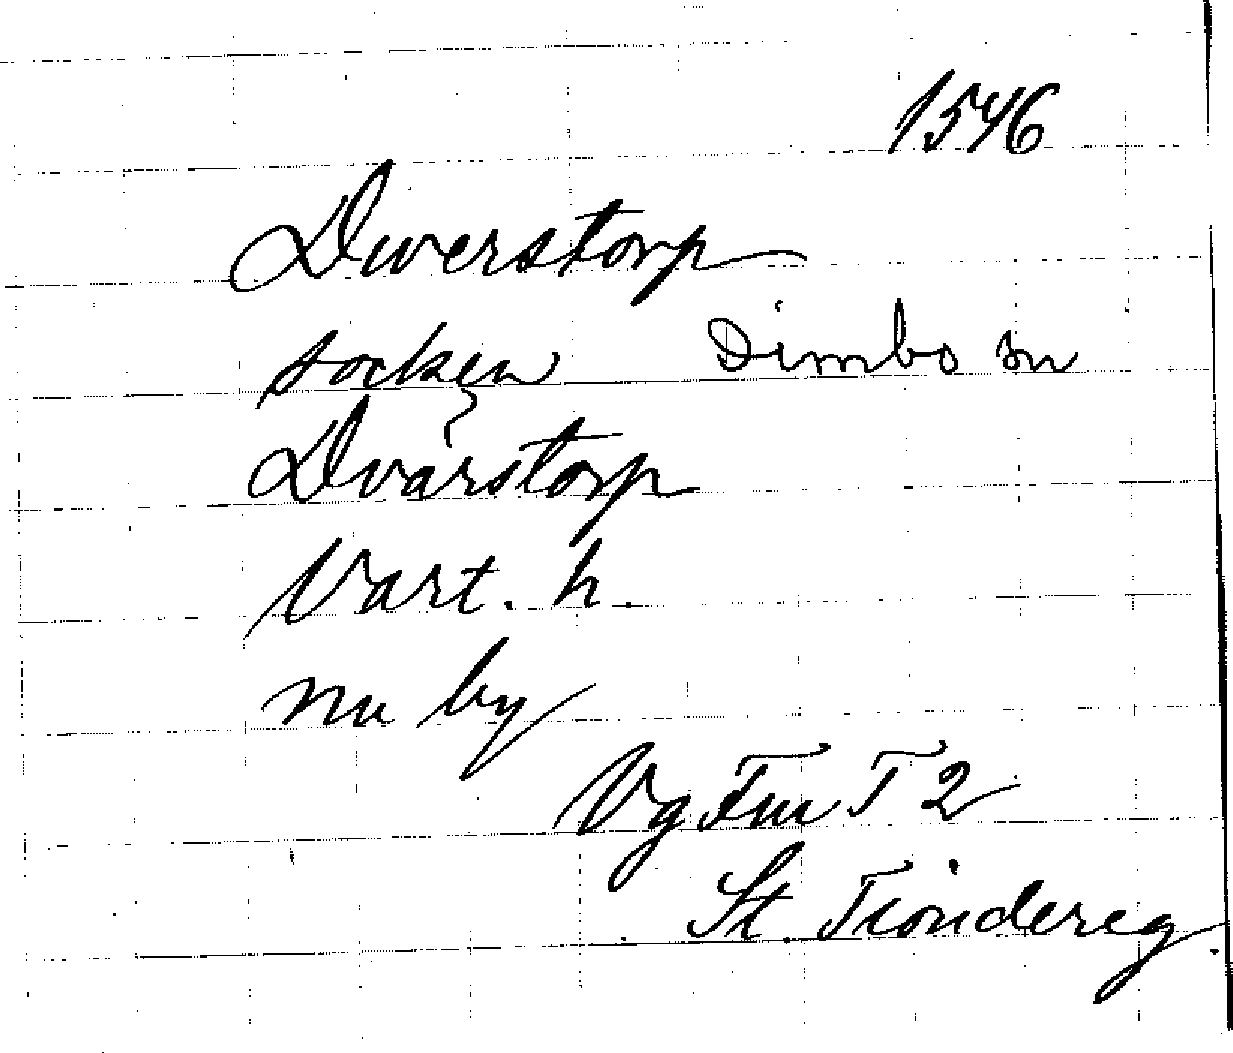 1546
Dwerstorp
socken Dimbo sn
Dvärstorp
Vart. h.
nu by
Vg Fm T 2
St. Tiondereg.